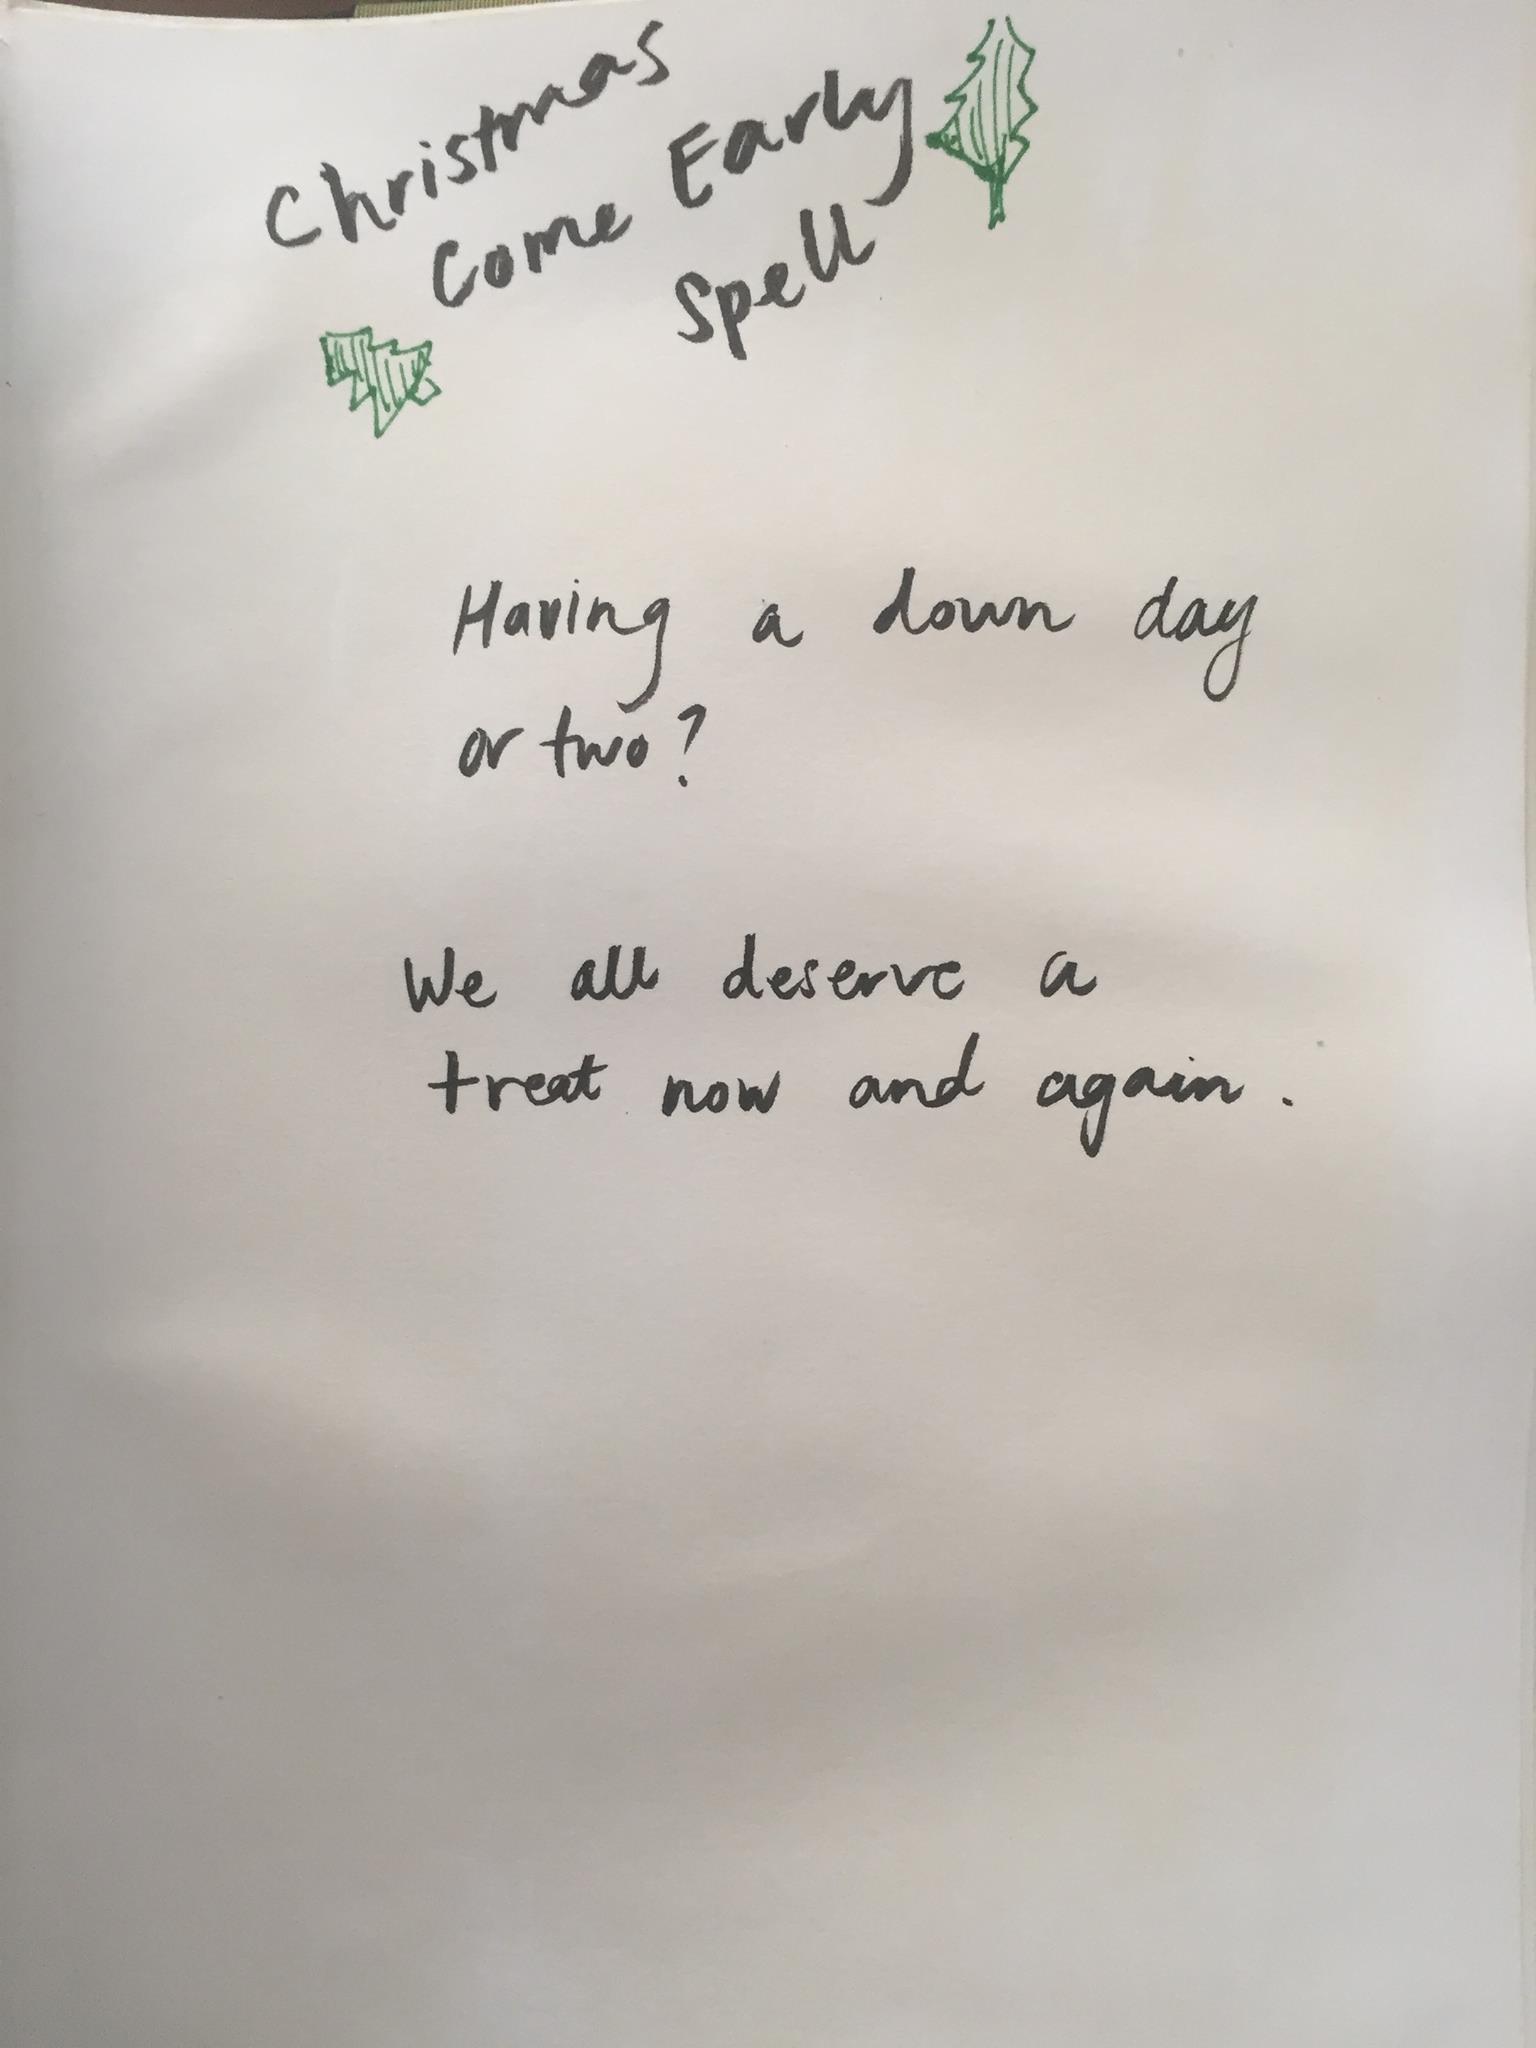 Christmas
Come Early
Spell
Having a down day
or two?
We all deserve a
treat now and again.